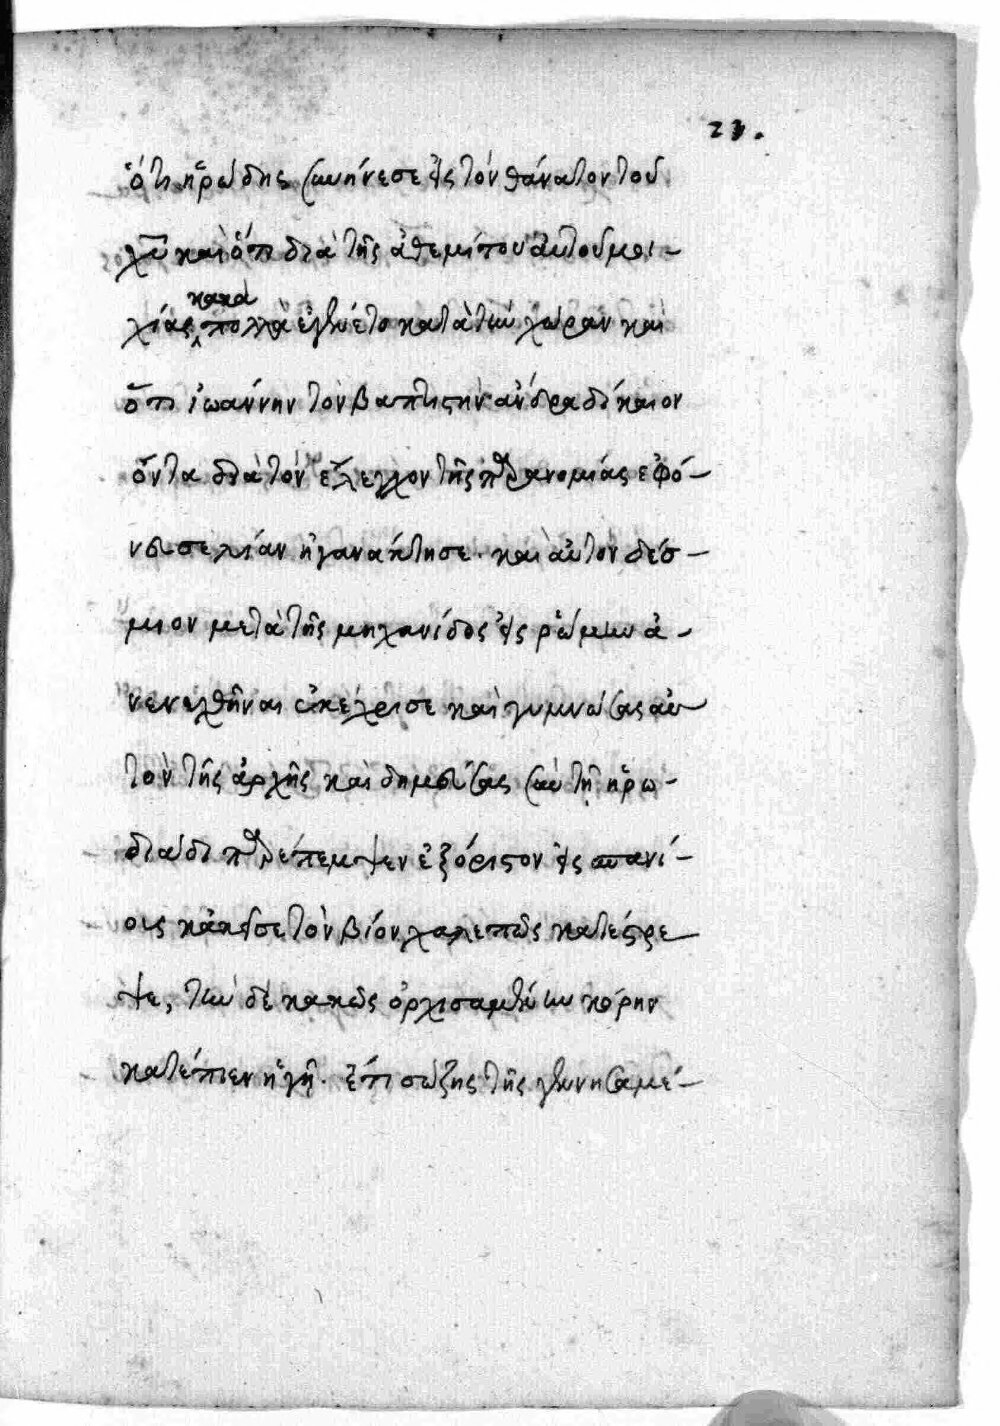 23.
ὅτι ἡρώδης συνήνεσε εἰς τὸν θάνατον τοῦ
χυ̅ καὶ ὅτι διὰ τῆς ἀθεμίτου αὐτοῦ μοι-
κακὰ
χίας πολλὰ ἐγένετο κατὰ τὴν χώραν καὶ
ὅτι ἰωάννην τὸν βαπτιστὴν ἄνδρα δίκαιον
ὄντα διὰ τὸν ἔλεγχον τῆς παρανομίας ἐφό-
νευσε λίαν ἠγανάκτησε. καὶ αὐτὸν δέσ-
μιον μετὰ τῆς μηχανίδος εἰς ῥώμην ἀ-
νενεχθῆναι ἐκέλευσε καὶ γυμνώσας αὐ
τὸν τῆς ἀρχῆς καὶ δημεύσας σὺν τῇ ἡρω-
διάδι παρέπεμψεν ἐξόριστον εἰς σπανί-
οις κἀκεῖσε τὸν βίον χαλεπῶς κατέστρε
ψε, τὴν δὲ κακῶς ὀρχησαμένην κόρην
κατέπιεν ἡ γῆ. ἔτι σώζης τῆς γεννησαμέ-